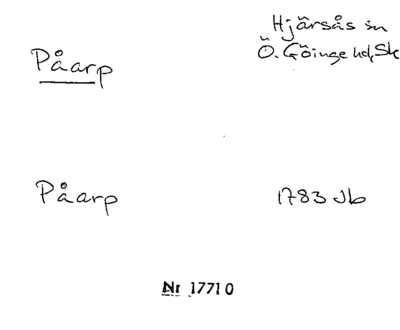 Hjärsås sn
Påarp
Ö. Göinge hd, Sk
Påarp
1783 Jb
Nr 17710